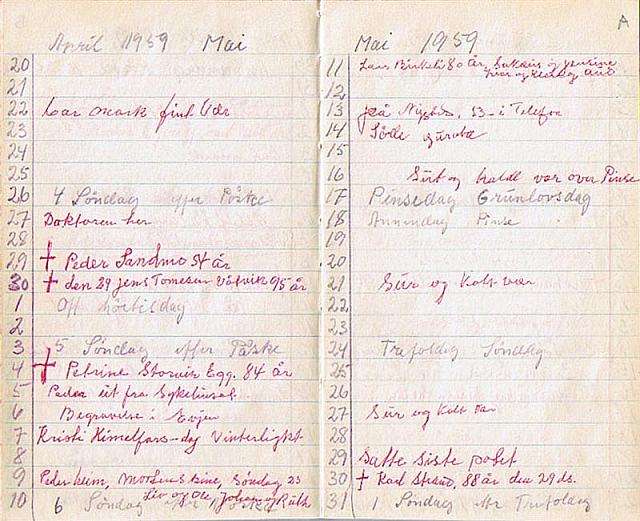 April 1959 Mai
20
21
22 bar mark fint Vær
23
24
25
26 4 Søndag efter Påske
27 Doktoren her
28
29 † Peder Sandmo 54 år
30 † den 29 Jens Tomesen 95 år
1 Off høitisdag
2
3 5 Søndag efter Påske
4 † Petrine Storvik Egg. 84 år
5 Peder ut fra Sykehuset
6 Begravelse i
7 Kristi Himelfars-dag Vinterligkt
8
9 Peder heim, Søndag 23
Liv og Ole, Johan og Ruth
10 6 Søndag
A
Mai 1959
11 Lars Birkeli 80 år,
12
13 på i Telefon
14 Sådde
15
16 Surt og kaldt var over Pinse
17 Pinsedag Grunlovsdag
18 Annendag Pinse
19
20
21 Sur og Kalt vær
22
23
24 Trefoldig Søndag
25
26
27 Sur og Kalt vær
28
29 Satte siste potet
30 † Karl Strand, 88 år den 29 ds.
31 1 Søndag ettr Trefoldig